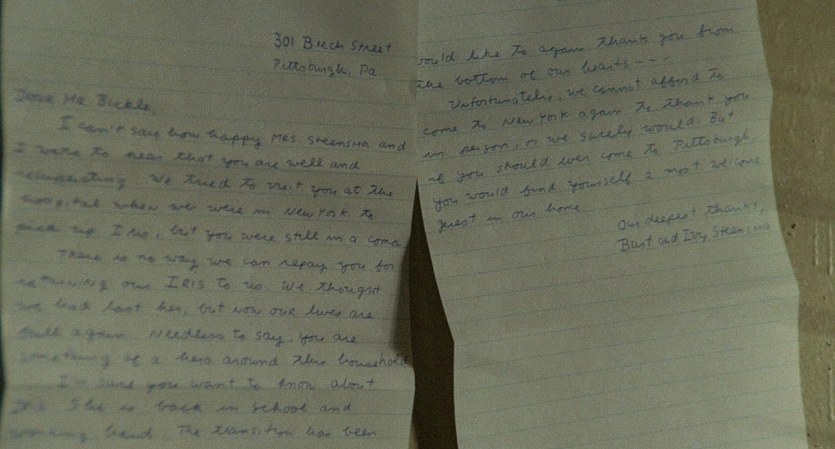 301 Birch Street
Pittsburgh, Pa
Dear Mr Bickle,
I can't say how happy Mrs. Steensma and
I were to hear that you are well and
recuperating. We tried to visit you at the
hospital when we were in New York to
pick up Iris, but you were still in a coma
There is no way we can repay you for
returning our Iris to us. We thought
we had lost her, but now our lives are
full again. Needless to say, you are
something of a hero around this household
I'm sure you want to know about
Iris. She is back in school and
working hard. The transition has been
would like to again thank you from
the bottom of our hearts - - -
Unfortunately, we cannot afford to
come to New York again to thank you
in person, or we surely would. But
if you should ever come to Pittsburgh,
you would find yourself a most welcome
guest in our home.
Our deepest thanks,
Burt and Ivy Steensma